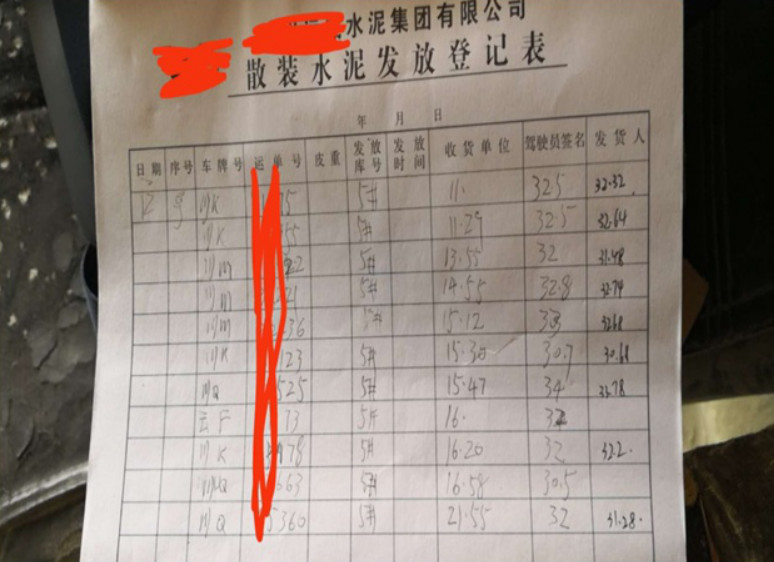 水泥集团有限公司
散装水泥发放登记表
年 月 日
日期 序号 车牌号 运单号 皮重 发放库号 发放时间 收货单位 驾驶员签名 发货人
川K 5# 11. 32.5 32.32
川K 5# 11.29 32.5 32.64
川M 5# 13.55 32 31.48
川M 5# 14.55 32.8 32.74
川M 36 5# 15.12 33 32.68
川K 123 5# 15.30 30.7 30.68
川Q 525 5# 15.47 34 33.78
云F 73 5# 16. 32
川K 78 5# 16.20 32 32.2.
663 5# 16.58 30.5
川Q 5360 5# 21.55 32 31.28.